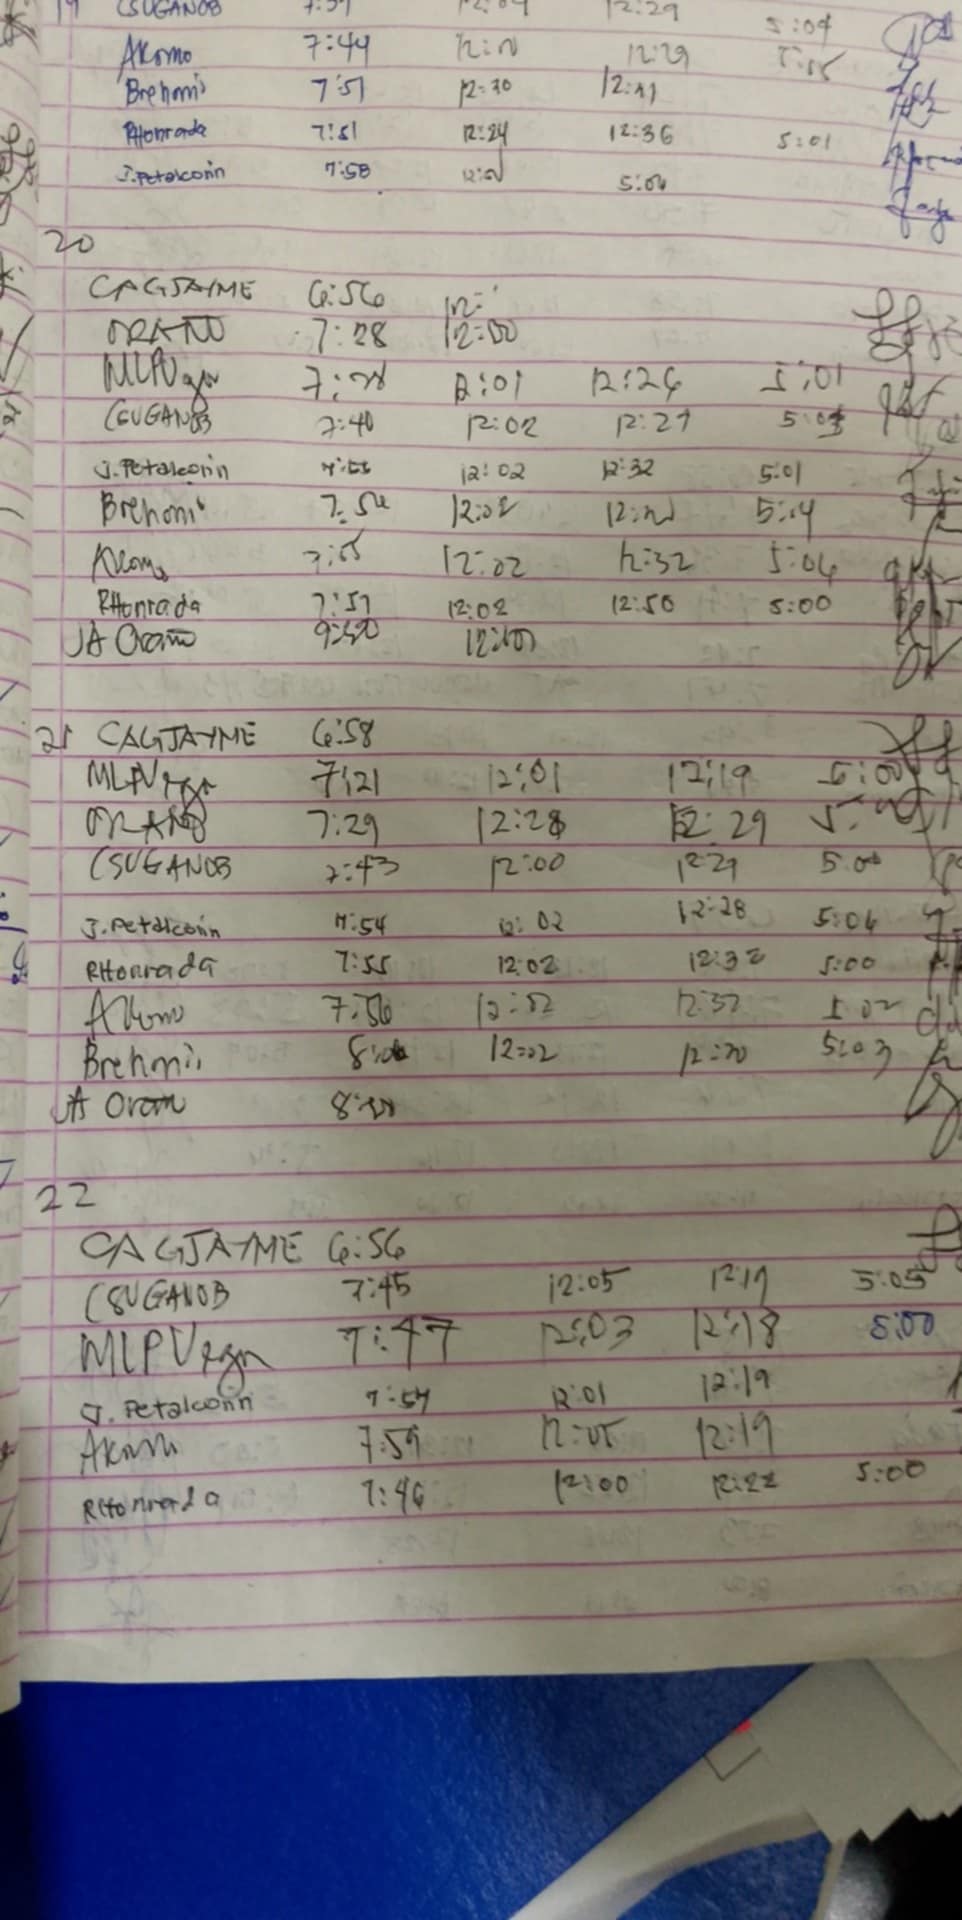 19 CSUGANOB 7:37 12:04 12:29 5:04
Akomo 7:44 12:29
Brehonis 7:51 12:30 12:31
RHonrada 7:51 12:24 12:36 5:01
J.Petalcorin 7:58 5:06
20
CAGJAYME 6:56 12:
ORANO 7:28 12:00
MLPVega 7:28 12:01 12:26 5:01
CSUGANOB 7:40 12:02 12:27 5:03
J.Petalcorin 12:02 12:32 5:01
Brehonis 7:54 12:02 5:04
Akomo 7:55 12:02 12:32 5:06
RHonrada 7:57 12:02 12:50 5:00
JA Orano 12:00
21 CAGJAYME 6:58
MLPVega 7:21 12:01 12:19 5:00
ORANO 7:29 12:28 12:29
CSUGANOB 7:43 12:00 12:29 5:00
J.Petalcorin 7:54 12:02 12:28 5:06
RHonrada 7:55 12:02 12:32 5:00
Akomo 7:56 12:02 12:32 5:02
Brehonis 12:02 12:30 5:03
JA Orano
22
CAGJAYME 6:56
CSUGANOB 7:45 12:05 12:19 5:05
MLPVega 7:47 12:03 12:18 5:00
J.Petalcorin 7:57 12:01 12:19
Akomo 7:59 12:05 12:19
RHonrada 7:46 12:00 12:22 5:00